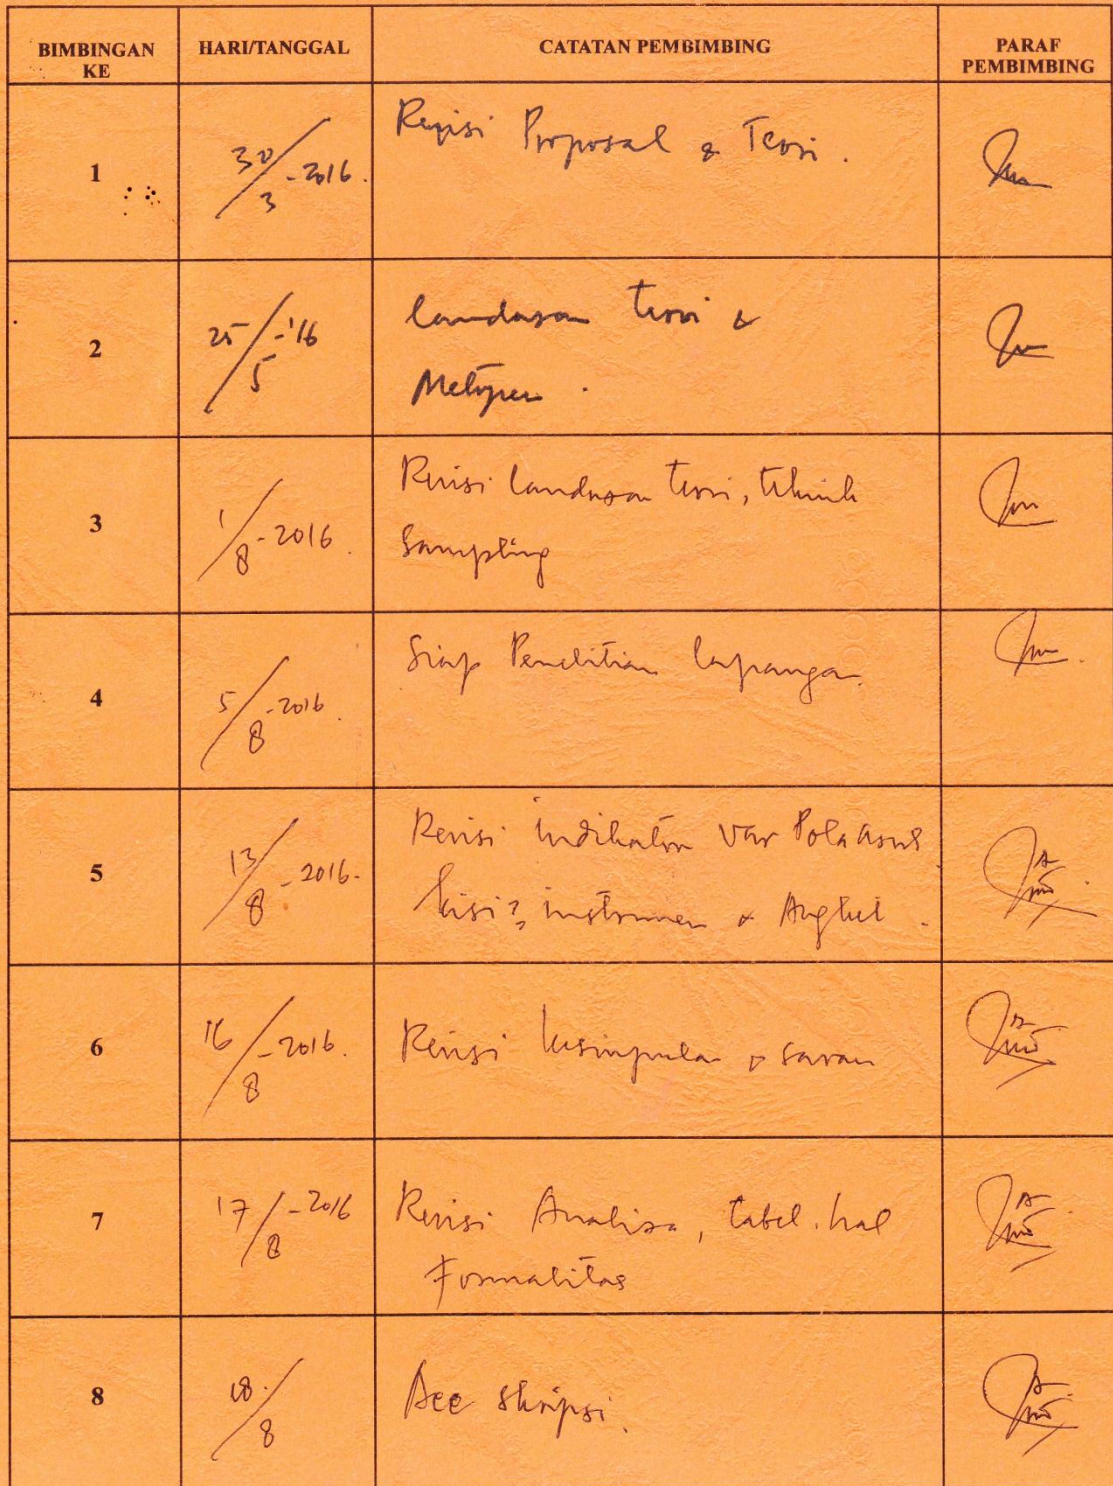 BIMBINGAN KE HARI/TANGGAL CATATAN PEMBIMBING PARAF PEMBIMBING
1 30/3-2016. Revisi Proposal & Teori.
2 25/5-'16 landasan teori &
Metopen.
3 1/8-2016. Revisi landasan teori, tekhnik
Sampling
4 5/8-2016. Siap Penelitian lapangan.
5 13/8-2016. Revisi indikator var Pola asuh
kisi2, instrumen & Angket.
6 16/8-2016. Revisi kesimpulan & saran
7 17/8-2016 Revisi Analisa, tabel. hal
Formalitas
8 18/8 Acc skripsi.